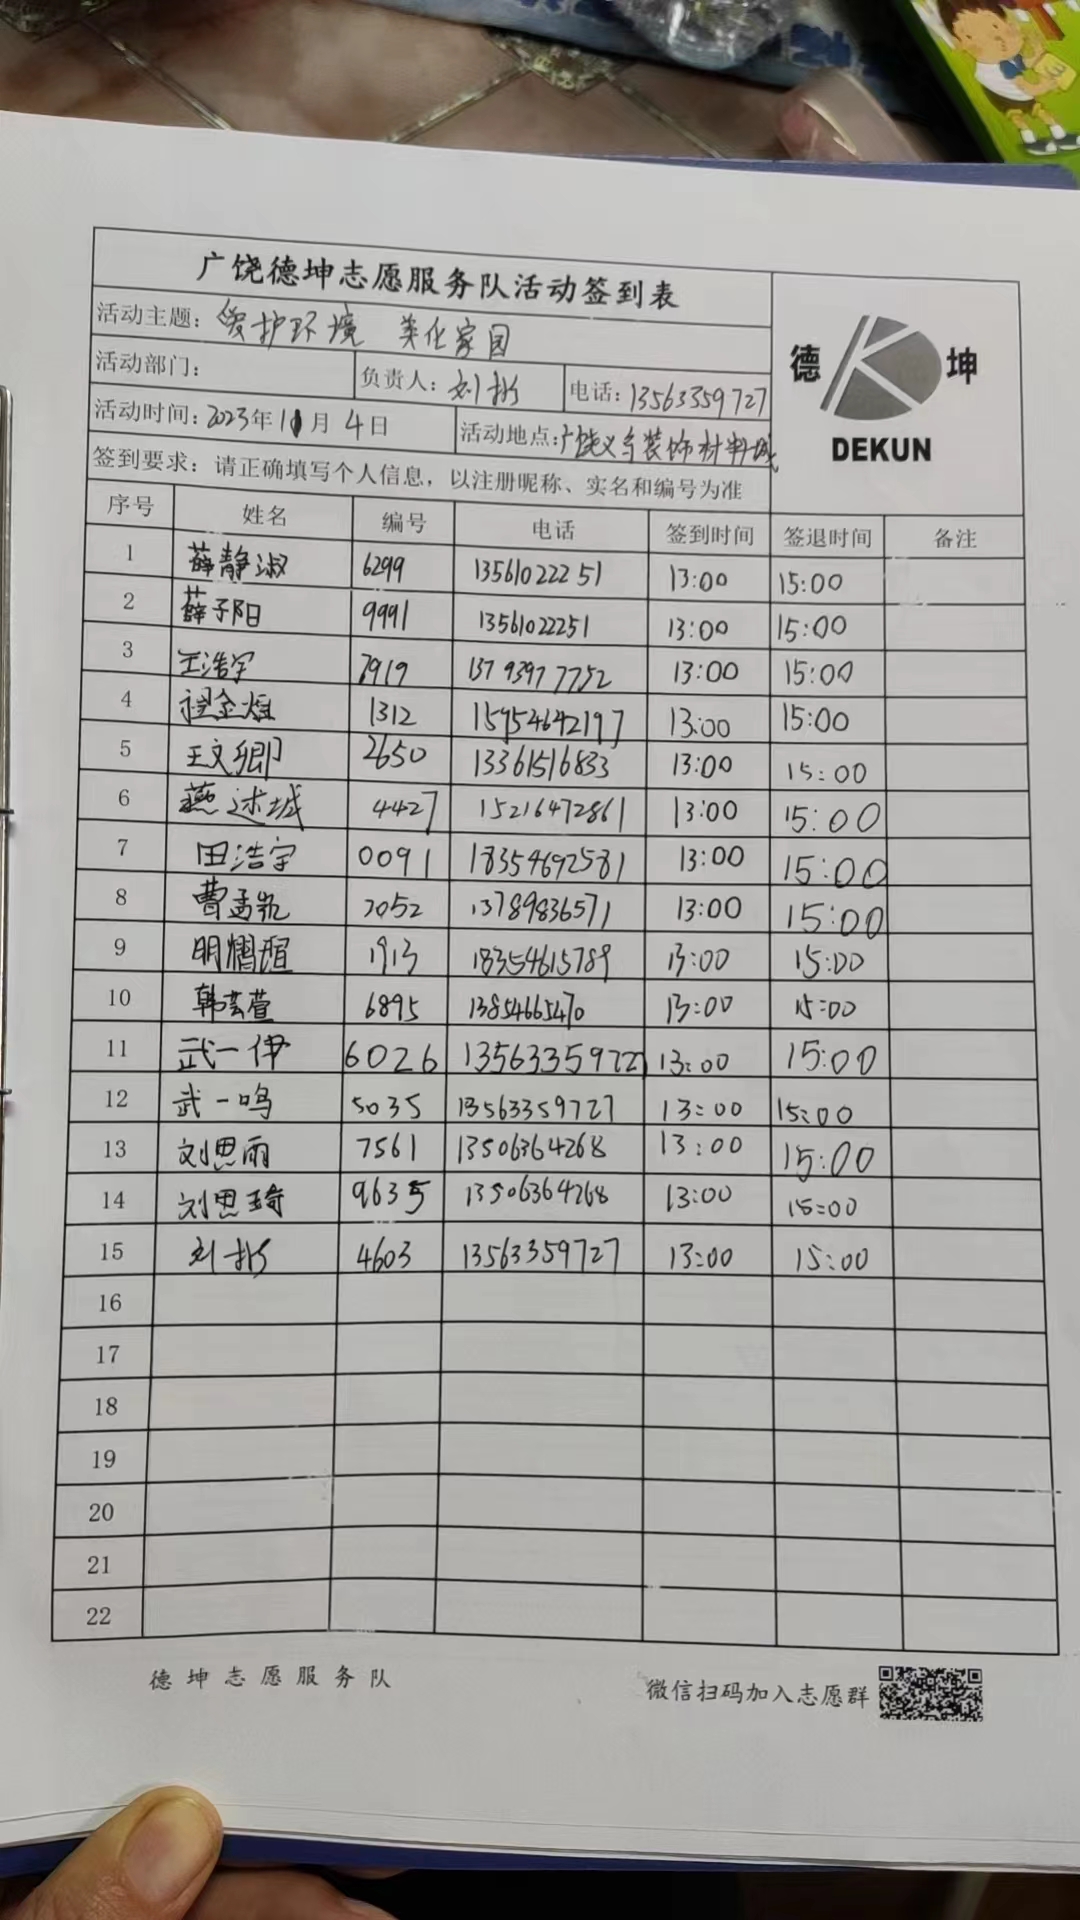 广饶德坤志愿服务队活动签到表
活动主题：爱护环境 美化家园
德 坤
DEKUN
活动部门： 负责人：刘彬 电话：13563359727
活动时间：2023年11月4日 活动地点：广饶义乌装饰材料城
签到要求：请正确填写个人信息，以注册昵称、实名和编号为准
序号 姓名 编号 电话 签到时间 签退时间 备注
1 薛静淑 6299 13561022251 13:00 15:00
2 薛子阳 9991 13561022251 13:00 15:00
3 王浩宇 7919 13793977752 13:00 15:00
4 程金煊 1312 15954642197 13:00 15:00
5 王文卿 2650 13361516833 13:00 15:00
6 燕述城 4427 15216472861 13:00 15:00
7 田浩宇 0091 18354692581 13:00 15:00
8 曹孟凯 7052 13789836571 13:00 15:00
9 明熠瑄 1913 18354615789 13:00 15:00
10 韩芸萱 6895 13854665470 13:00 15:00
11 武一伊 6026 13563359727 13:00 15:00
12 武一鸣 5035 13563359727 13:00 15:00
13 刘思雨 7561 13506364268 13:00 15:00
14 刘思琦 9635 13506364268 13:00 15:00
15 刘彬 4603 13563359727 13:00 15:00
16
17
18
19
20
21
22
德坤志愿服务队 微信扫码加入志愿群